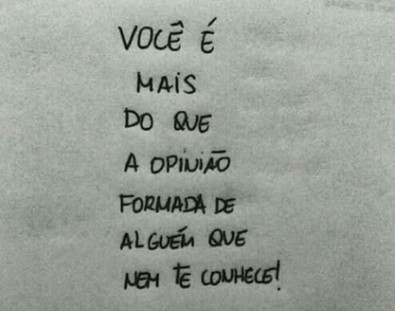 VOCÊ É
MAIS
DO QUE
A OPINIÃO
FORMADA DE
ALGUÉM QUE
NEM TE CONHECE!